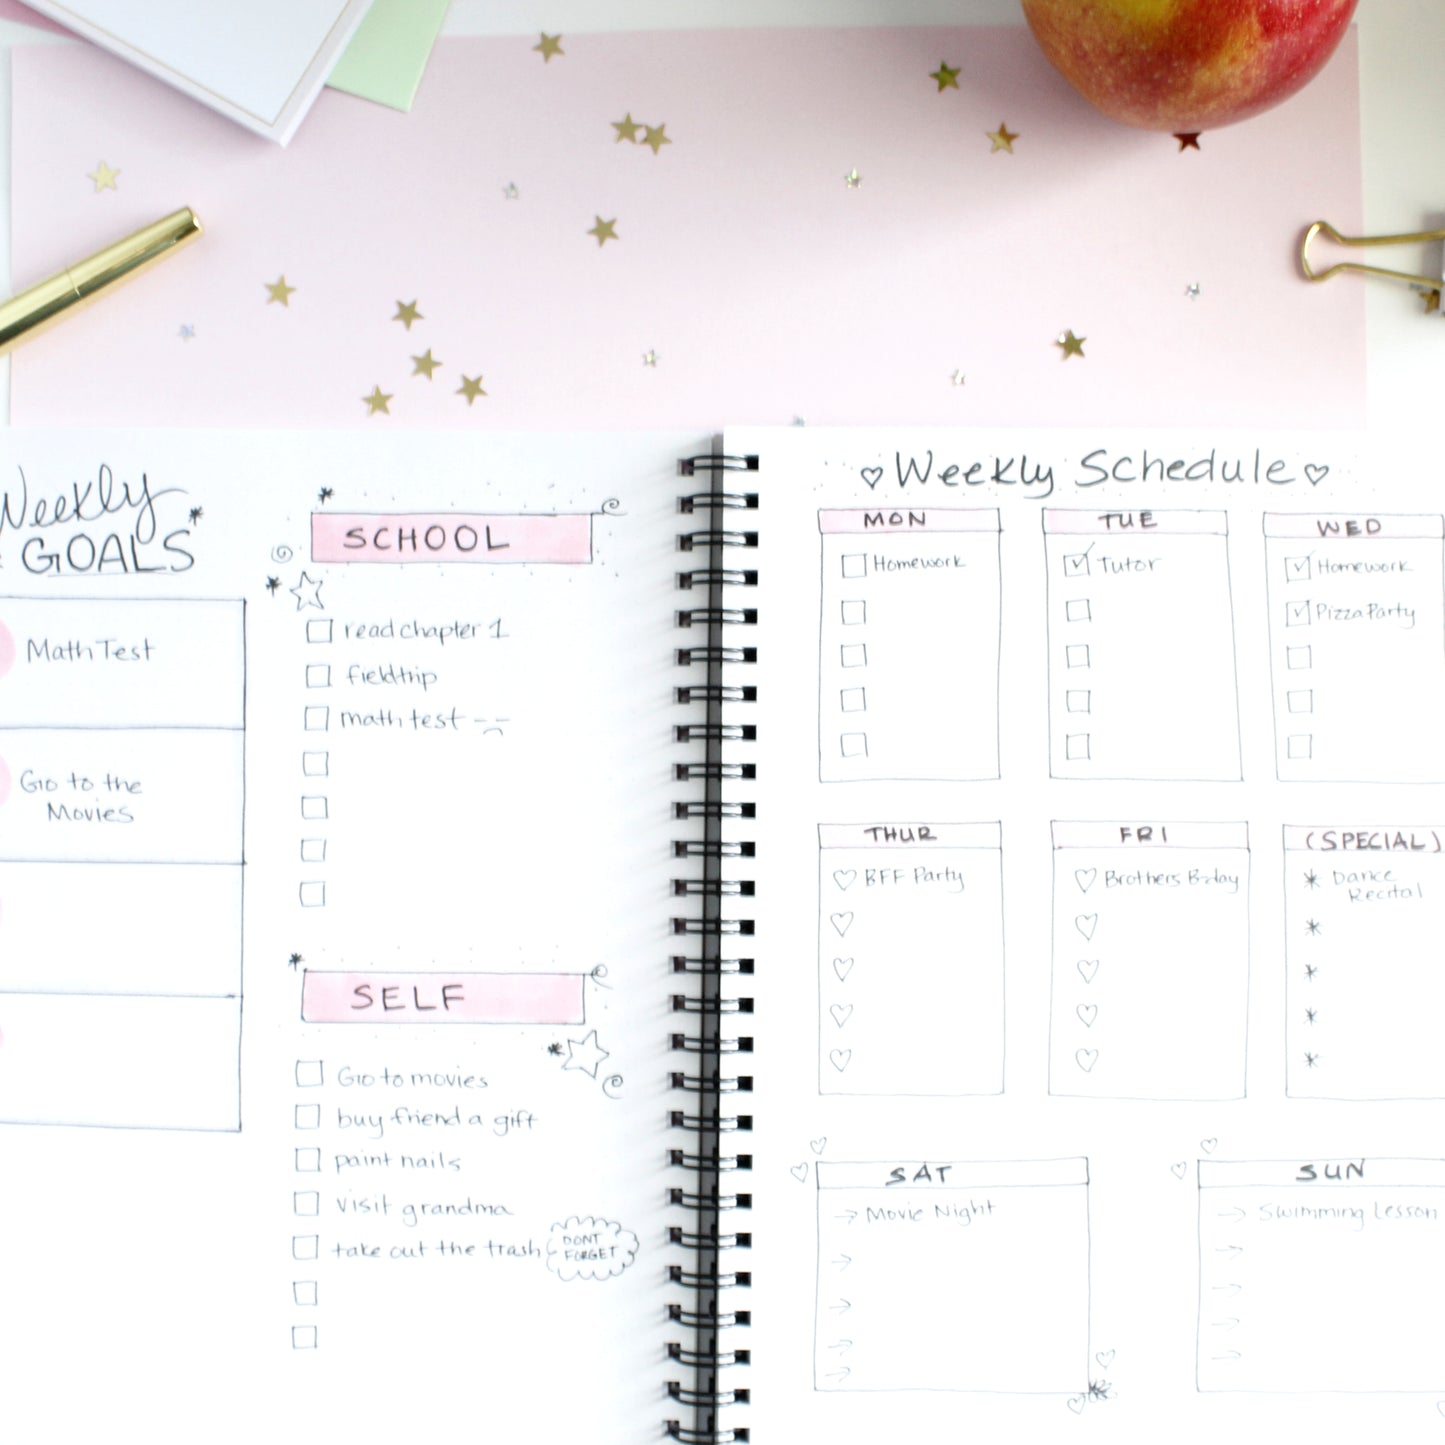 Weekly
GOALS
Math Test
Go to the
Movies
SCHOOL
read chapter 1
fieldtrip
math test
SELF
Go to movies
buy friend a gift
paint nails
visit grandma
take out the trash
DONT
FORGET
Weekly Schedule
MON
Homework
TUE
Tutor
WED
Homework
Pizza Party
THUR
BFF Party
FRI
Brothers B-day
(SPECIAL)
Dance
Recital
SAT
Movie Night
SUN
Swimming Lesson